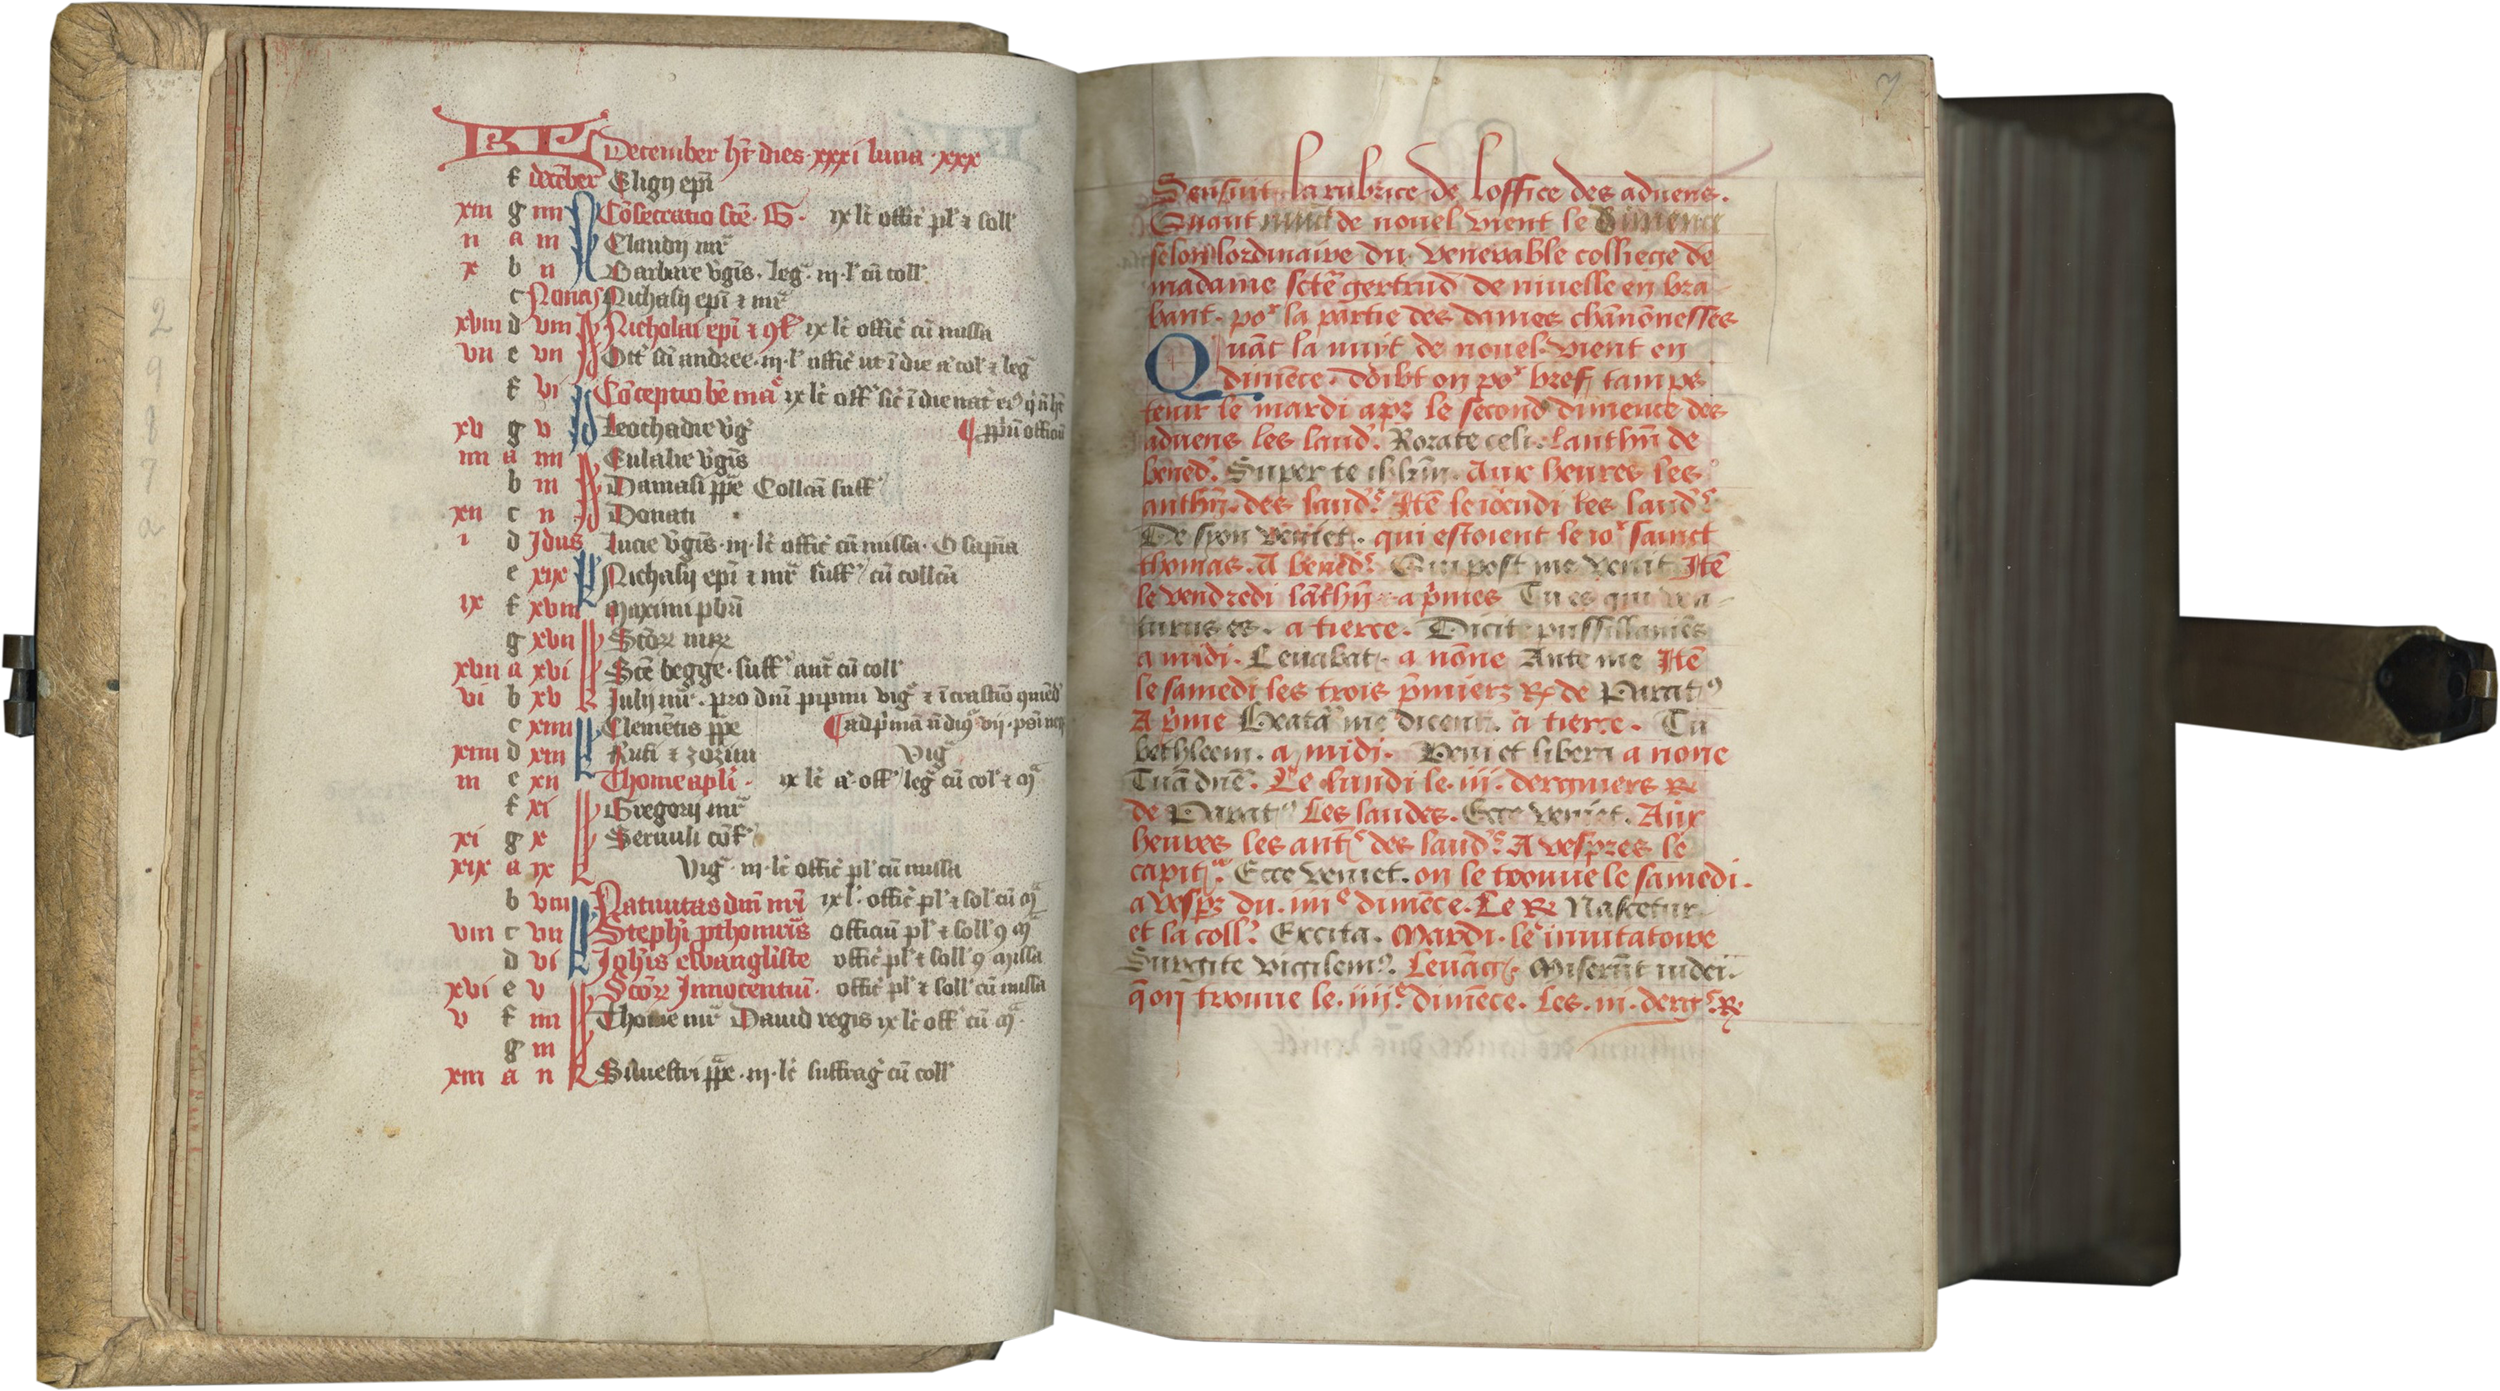 KL December ht dies xxxi luna xxx
f december Eligij epi
xiii g iiii Cosecratio scte G. ix lc offic pl & soll
ii a iii Claudij mr
x b ii Barbare vgis. leg. iii l cu coll
c Nonas Nichasij epi & mr
xviii d viii Nicholai epi & gf ix lc offic cu missa
vii e vii Oct sci andree. iii l offic ut i die & col & leg
f vi Coceptio be ma ix lc off sic i die nat
xv g v Leochadie vg ppiu officiu
iiii a iiii Eulalie vgis
b iii Damasi ppe Collcta suff
xii c ii Donati
i d Idus Lucie vgis. iii. lc offic cu missa. O sapia
e xix Nichasij epi & mr suff cu collcta
ix f xviii Maximi pbri
g xvii Sctor mr
xvii a xvi Scte begge. suff ant cu coll
vi b xv Julij mr. pro dni pipini vig
c xiiii Clemetis ppe
xiiii d xiii Rufi & zozimi vig
iii e xii Thome apli. ix lc off leg cu col &
f xi Gregorij mr
xi g x Seruuli cof
xix a ix Vig. iii. lc offic pl cu missa
b viii Natiuitas dni nri ix l. offic pl & sol cu
viii c vii Stephi pthomris officiu pl & soll
d vi Johis ewangliste offic pl & soll missa
xvi e v Sctor Innocentiu. offic pl & soll cu missa
v f iiii Thome mr Dauid regis ix lc off cu
g iii
xiii a ii Siluestri ppe. iii. lc suffrag cu coll
3
Sensuit la rubrice de loffice des aduens.
Quant nuict de nouel vient le dimence
selon lordinaire du venerable colliege de
madame scte gertrud de niuelle en bra
bant. por la partie des dames chanonesses
Quat la nuyt de nouel vient en
dimece. doibt on por bref tamps
tenir le mardi aprz le second dimence des
aduens les laud. Rorate celi. Lanthn de
bened. Super te ihlrm. Aux heures les
anthn. des laud. Ite le ioeudi les laud
De syon veniet. qui estoient le ior sainct
thomas. A bened. Qui post me venit Ite
le vendredi lathn. a pmes Tu es qui ven
turus es. a tierce. Dicite pussillanies
a midi. Leuabat. a none Ante me Ite
le samedi les trois pmierz R de Parat
A pme Beata me dicent. a tierce. Tu
bethleem. a midi. Veni et libera a none
Tua dne. Le lundi le. iii. dergniers R
de Parat Les laudes. Ecce veniet. Aux
heures les ant des laud. A vespres le
capit. Ecce veniet. on le trouue le samedi.
a vesprz du. iiii dimece. Le R Nascetur
et la coll. Excita. Mardi. le inuitatoire
Surgite vigilem. Leuac. Miserut iudei.
q on trouue le. iiij. dimece. Les. iii. derg R